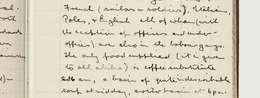 French (sailors & soldiers), Italian,
Poles, & English all of whom (with
the exception of officers and under-
officers), are also in the labour gangs.
The only food supplied (it is given
to all alike) is coffee substitute
a basin of quite indescribable
soup at midday, another basin at 6 p.m.